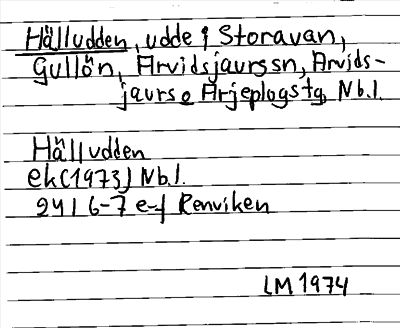 Hälludden, udde i Storavan,
Gullön, Arvidsjaurssn, Arvids-
jaurs o Arjeplogs tg, Nb.l.
Hälludden
ek (1973) Nb.l.
24I 6-7 e-f Renviken
LM 1974